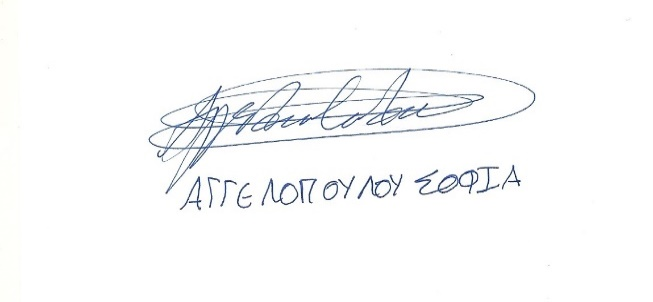 ΑΓΓΕΛΟΠΟΥΛΟΥ ΣΟΦΙΑ